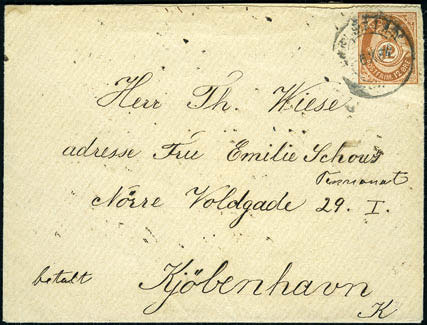 12
Herr Th. Wiese
adresse Frü Emilie Schous
Pensionat
Nörre Voldgade 29. I.
betalt
Kjöbenhavn
K